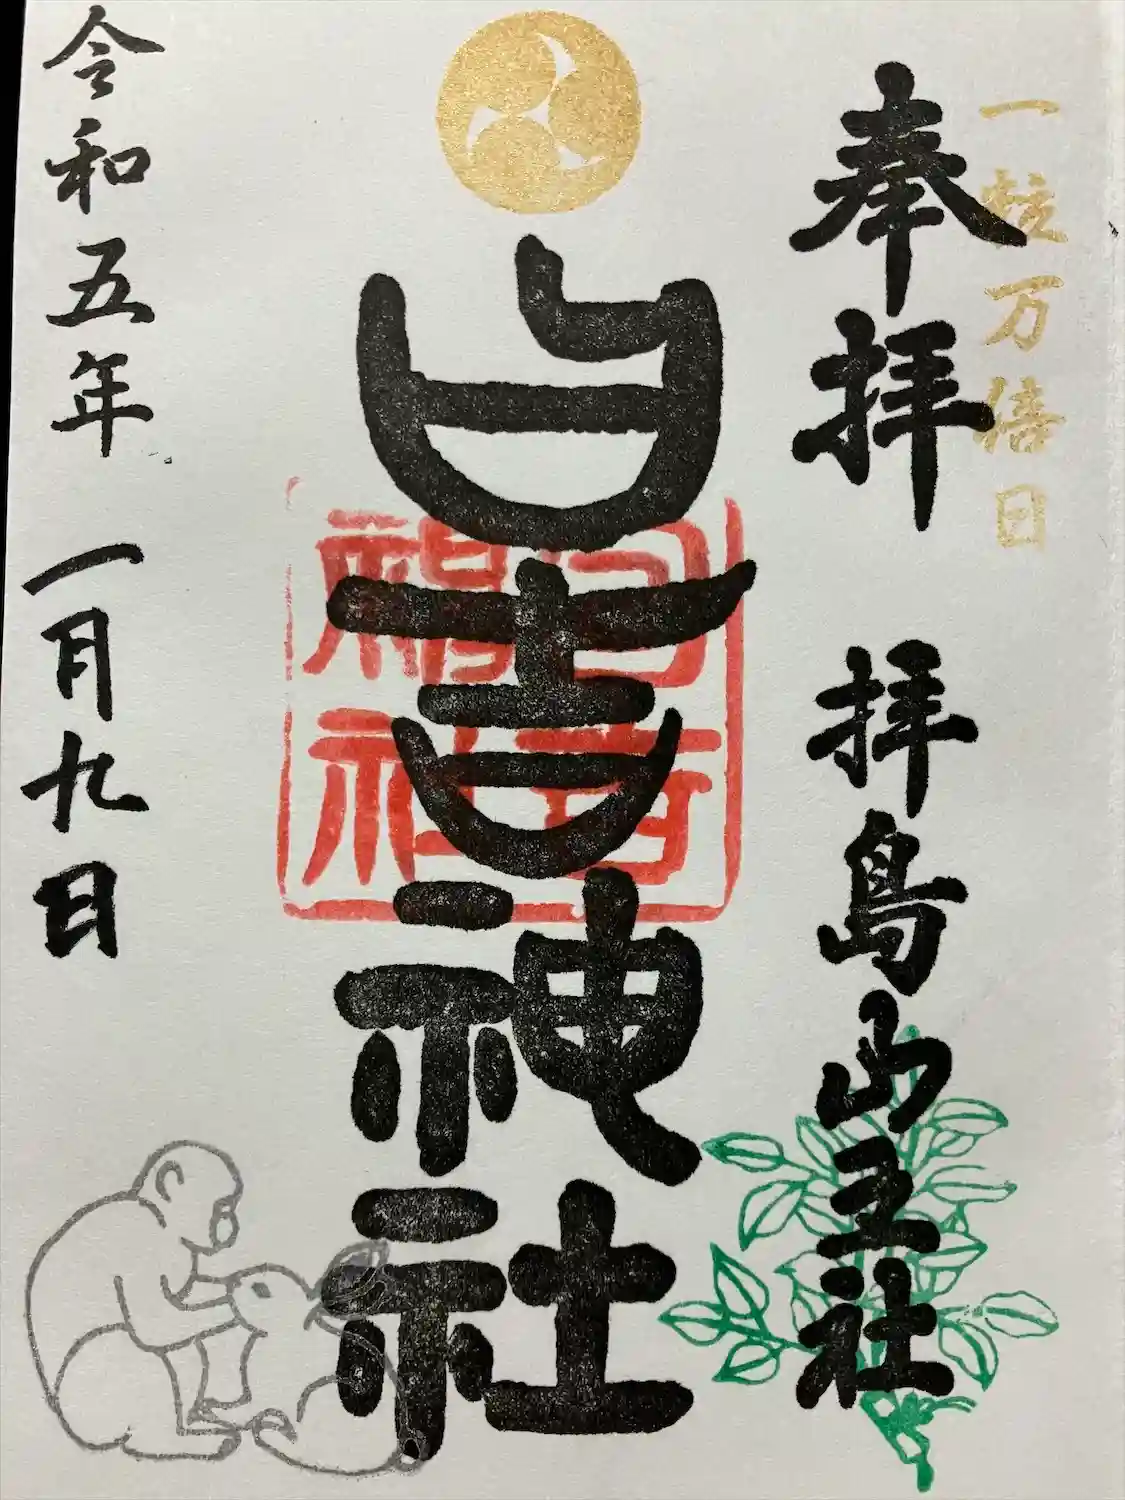 一粒万倍日
奉拝 拝島山王社
日吉神社
日吉
神社
令和五年 一月九日